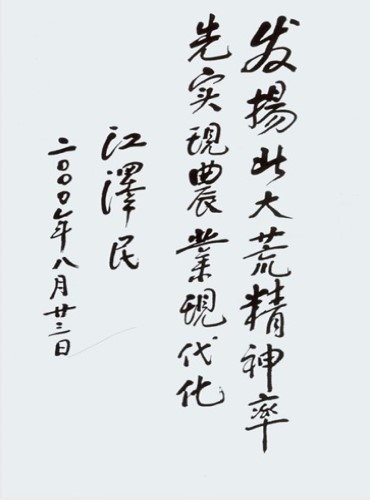 发揚北大荒精神率
先实現農業現代化
江澤民
二〇〇〇年八月廿三日